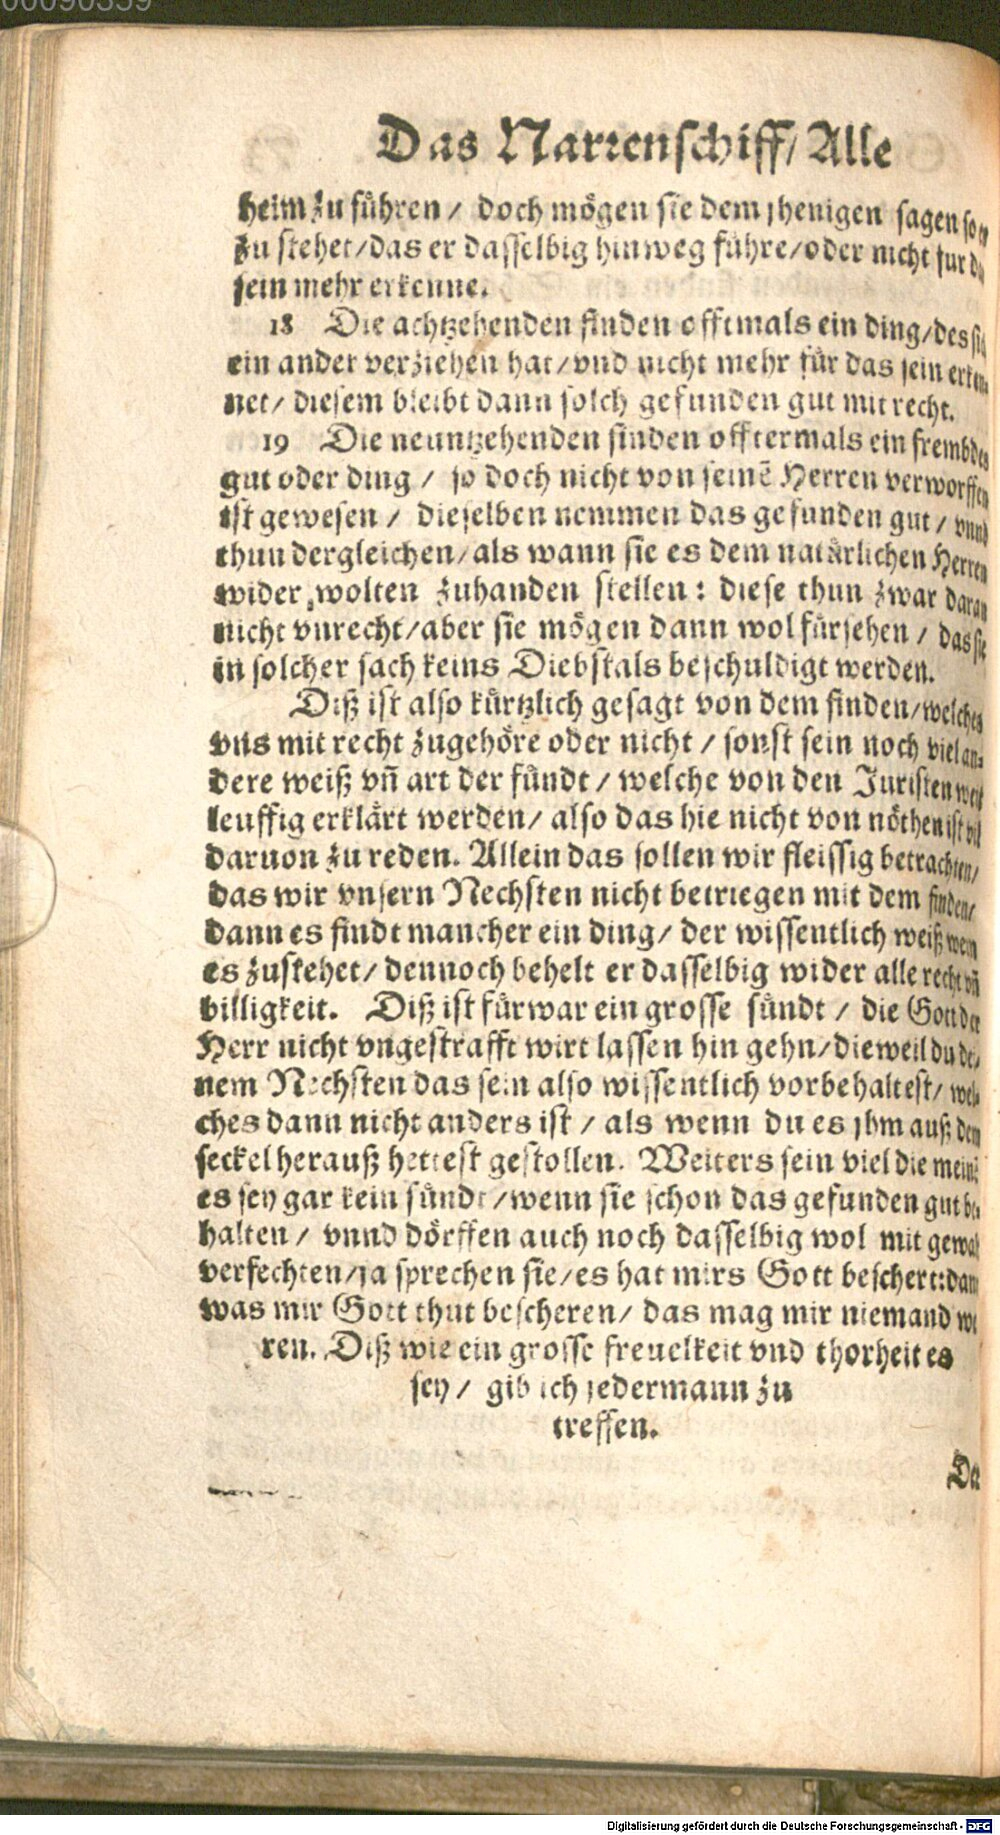 00090359
Das Narrenschiff/ Alle
heim zu führen / doch mögen sie dem jhenigen sagen so
zu stehet/das er dasselbig hinweg führe/oder nicht für
sein mehr erkenne.
18 Die achtzehenden finden offtmals ein ding/des
ein ander verziehen hat/vnd nicht mehr für das sein
net/ diesem bleibt dann solch gefunden gut mit recht.
19 Die neuntzehenden finden offtermals ein frembdes
gut oder ding / so doch nicht von seinē Herren verworffen
ist gewesen / dieselben nemmen das gefunden gut / vnnd
thun dergleichen/als wann sie es dem natürlichen Herren
wider wolten zuhanden stellen: diese thun zwar daran
nicht vnrecht/aber sie mögen dann wol fürsehen / das sie
in solcher sach keins Diebstals beschuldigt werden.
Diß ist also kürtzlich gesagt von dem finden/welches
vns mit recht zugehöre oder nicht / sonst sein noch viel an-
dere weiß vñ art der fündt / welche von den Juristen weit
leuffig erklärt werden/ also das hie nicht von nöthen ist vil
daruon zu reden. Allein das sollen wir fleissig betrachten/
das wir vnsern Nechsten nicht betriegen mit dem finden/
dann es findt mancher ein ding/ der wissentlich weiß wem
es zustehet/ dennoch behelt er dasselbig wider alle recht vñ
billigkeit. Diß ist fürwar ein grosse sündt / die Gott der
Herr nicht vngestrafft wirt lassen hin gehn/dieweil du dei-
nem Nechsten das sein also wissentlich vorbehaltest/ wel-
ches dann nicht anders ist / als wenn du es jhm auß dem
seckel herauß hettest gestollen. Weiters sein viel die meinē
es sey gar kein sündt/wenn sie schon das gefunden gut be-
halten / vnnd dörffen auch noch dasselbig wol mit gewalt
verfechten/ja sprechen sie/es hat mirs Gott beschert:dann
was mir Gott thut bescheren/ das mag mir niemand we
ren. Diß wie ein grosse freuelkeit vnd thorheit es
sey / gib ich jedermann zu
treffen.
Der
Digitalisierung gefördert durch die Deutsche Forschungsgemeinschaft - DFG